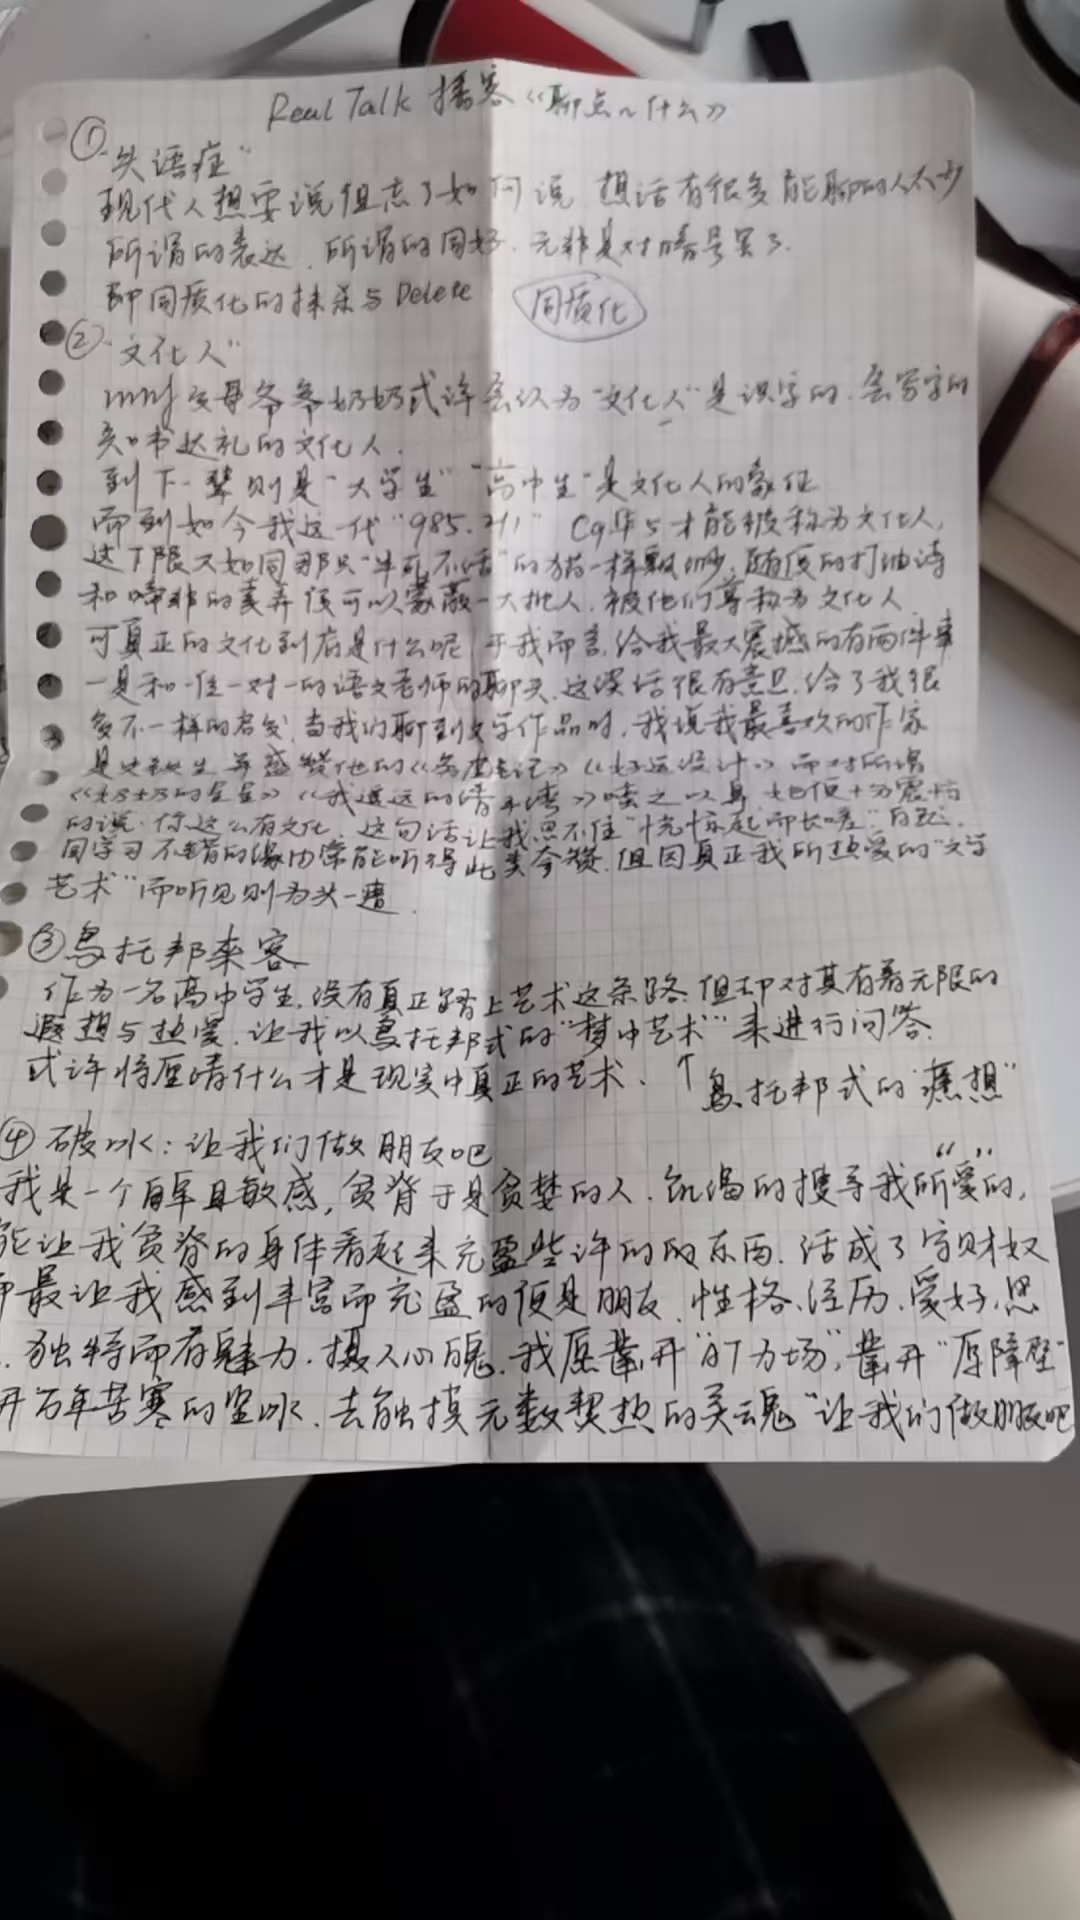 Real Talk 播客《聊点~什么》
① "失语症"
现代人想要说但忘了如何说 想话有很多能聊的人太少
所谓的表达、所谓的同好、无非是对暗号罢了.
即同质化的抹杀与Delete 同质化
② "文化人"
父母爷爷奶奶或许会认为"文化人"是识字的、会写字的
知书达礼的文化人.
到下一辈则是"大学生" "高中生"是文化人的象征
而到如今我这一代"985.211" C9华5才能被称为文化人,
这下限又如同那只"半死不活"的猫一样飘渺,随便的打油诗
和 的卖弄便可以蒙蔽一大批人,被他们尊称为文化人.
可真正的文化到底是什么呢,于我而言,给我最大震撼的有两件事
一是和一位一对一的语文老师的聊天,这谈话很有意思,给了我很
多不一样的启发,当我们聊到文学作品时,我说我最喜欢的作家
是史铁生 并盛赞他的《务虚笔记》《好运设计》而对所谓
《奶奶的星星》《我遥远的清平湾》嗤之以鼻 她便十分震惊
的说:你这么有文化,这句话让我忍不住"恍惊起而长嗟"自 ,
因学习不错的缘由常能听得此类夸赞,但因真正我所热爱的"文学
艺术"而听见则为头一遭.
③ 乌托邦来客
作为一名高中学生,没有真正踏上艺术这条路,但却对其有着无限的
遐想与热爱,让我以乌托邦式的"梦中艺术"来进行问答
或许将厘清什么才是现实中真正的艺术. ↑乌托邦式的"臆想"
④ 破冰:让我们做朋友吧
我是一个自卑且敏感,贫脊于是贪婪的人.饥渴的搜寻我"所爱"的,
能让我贫脊的身体看起来充盈些许的的东西,活成了守财奴
最让我感到丰富而充盈的便是朋友,性格、经历、爱好、思
.独特而有魅力.摄人心魄.我愿凿开"AT力场",凿开"厚障壁"
开万年苦寒的坚冰,去触摸无数契热的灵魂"让我们做朋友吧